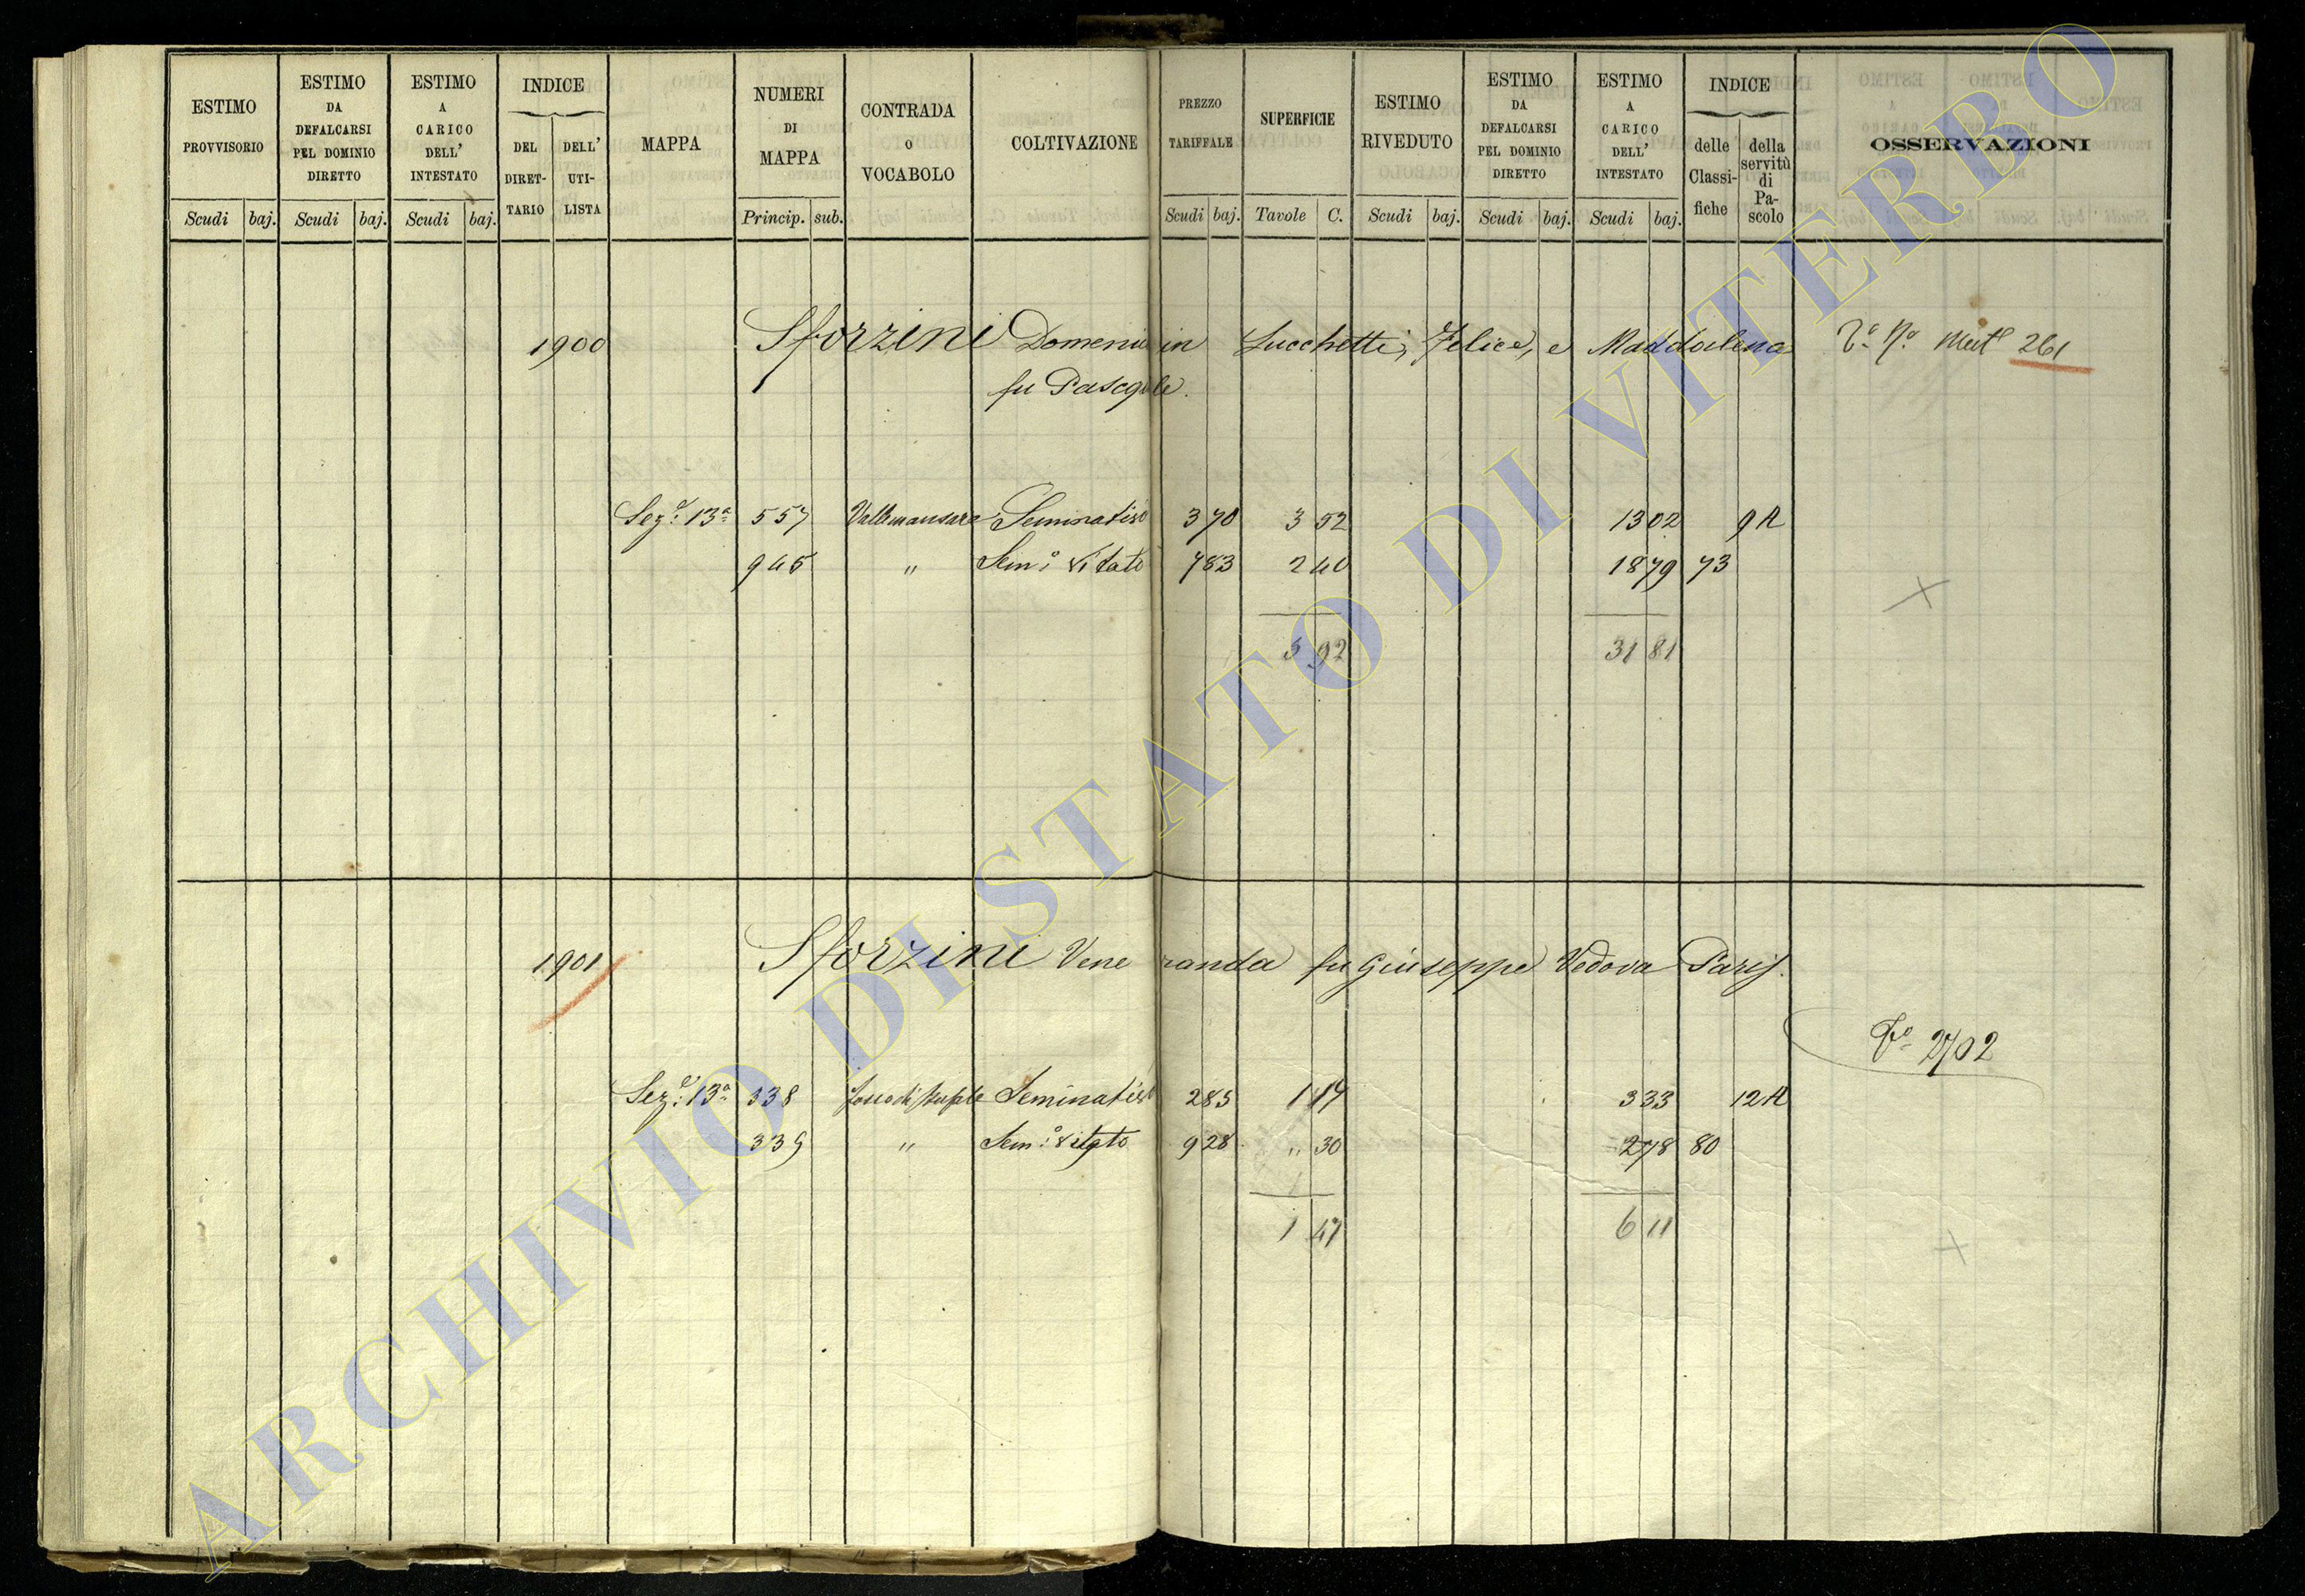 ESTIMO PROVVISORIO
ESTIMO DA DEFALCARSI PEL DOMINIO DIRETTO
ESTIMO A CARICO DELL' INTESTATO
INDICE
DEL DIRET-TARIO
DELL' UTI-LISTA
MAPPA
NUMERI DI MAPPA
CONTRADA O VOCABOLO
COLTIVAZIONE
PREZZO TARIFFALE
SUPERFICIE
ESTIMO RIVEDUTO
ESTIMO DA DEFALCARSI PEL DOMINIO DIRETTO
ESTIMO A CARICO DELL' INTESTATO
INDICE
delle Classi-fiche
della servitù di Pa-scolo
OSSERVAZIONI
Scudi baj. Scudi baj. Scudi baj. Princip. sub. Scudi baj. Tavole C. Scudi baj. Scudi baj. Scudi baj.
1900 Sforzini Domenica in Lucchetti, Felice, e Maddalena 261
fu Pasquale.
Sez.e 13a 557 Vallemansara Seminativo 3 70 3 52 13 02 9A
945 " Sem.o Vitato 7 83 2 40 18 79 73
5 92 31 81
1901 Sforzini Veneranda fu Giuseppe Vedova Parisj.
Vo 2702
Sez.e 13a 338 Seminativo 2 85 1 17 3 33 12A
339 " Sem.o Vitato 9 28 " 30 2 78 80
1 47 6 11
ARCHIVIO DI STATO DI VITERBO